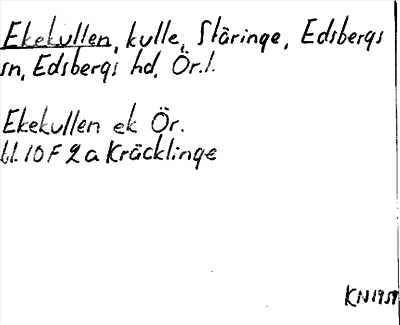 Ekekullen, kulle, Stäringe, Edsbergs
sn, Edsbergs hd, Ör.l.
Ekekullen ek Ör.
bl. 10 F 2 a Kräcklinge
KN 1959